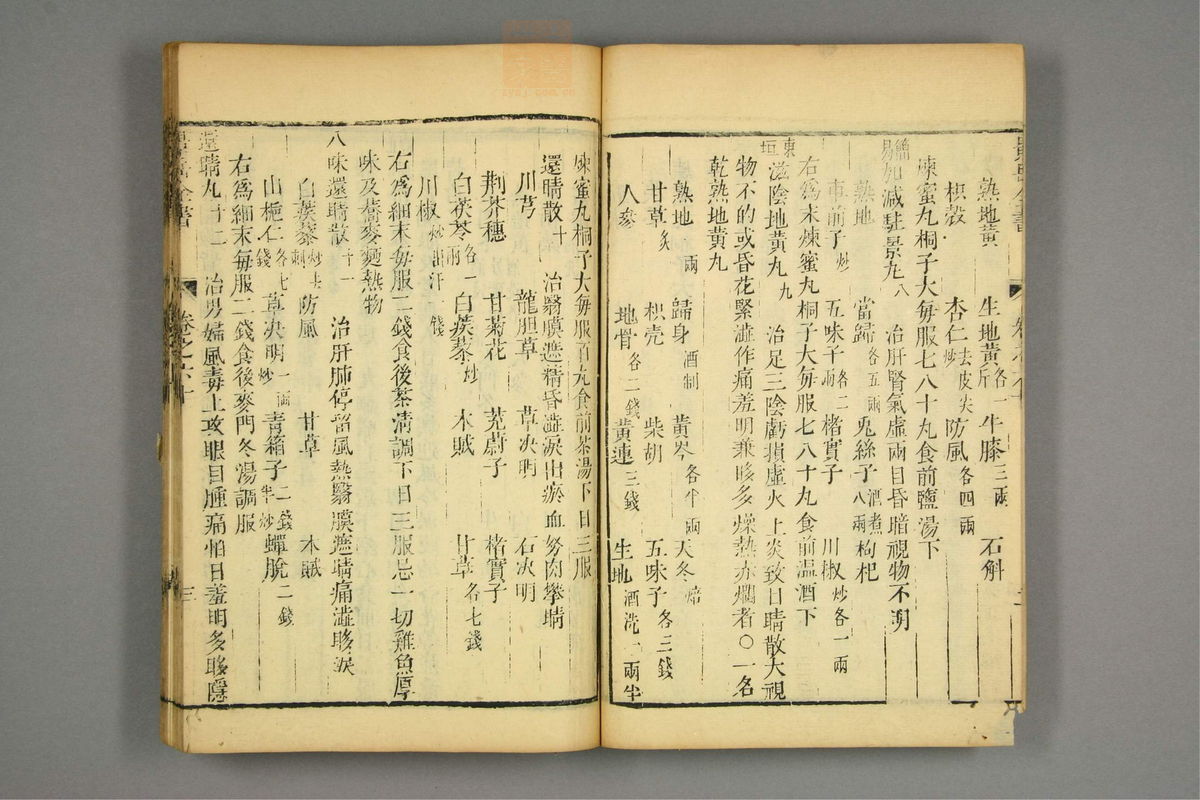 熟地黄 生地黄各一斤 牛膝三兩 石斛
枳殼 杏仁去皮尖炒 防風各四兩
煉蜜丸桐子大每服七八十丸食前鹽湯下
加減駐景丸八 治肝腎氣虛兩目昏暗視物不明
熟地 當歸各五兩 兎絲子酒煮八兩 枸杞
車前子炒 五味子各二兩 楮實子 川椒炒各一兩
右為末煉蜜丸桐子大每服七八十丸食前溫酒下
東垣滋陰地黄丸九 治足三陰虧損虛火上炎致目睛散大視
物不的或昏花緊澁作痛羞明兼眵多燥熱赤爛者○一名
乾熟地黄丸
熟地一兩 歸身酒制 黄芩各半兩 天冬焙
甘草炙 枳壳 柴胡 五味子各三錢
人參 地骨各二錢 黄連三錢 生地酒洗一兩半
煉蜜丸桐子大每服百丸食前茶湯下日三服
還睛散十 治翳膜遮精昏澁淚出瘀血努肉攀睛
川芎 龍胆草 草決明 石決明
荆芥穗 甘菊花 茺蔚子 楮實子
白茯苓各一兩 白蒺藜炒 木賊 甘草各七錢
川椒炒出汗一錢
右為細末每服二錢食後茶清調下日三服忌一切雞魚厚
味及蕎麥麵熱物
八味還睛散十一 治肝肺停留風熱翳膜遮睛痛澁眵淚
白蒺藜炒去刺 防風 甘草 木賊
山梔仁各七錢 草决明炒一兩 青箱子二錢半炒 蟬脫二錢
右為細末每服二錢食後麥門冬湯調服
還睛丸十二 治男婦風毒上攻眼目腫痛怕日羞明多眵隱
卷之六十
三